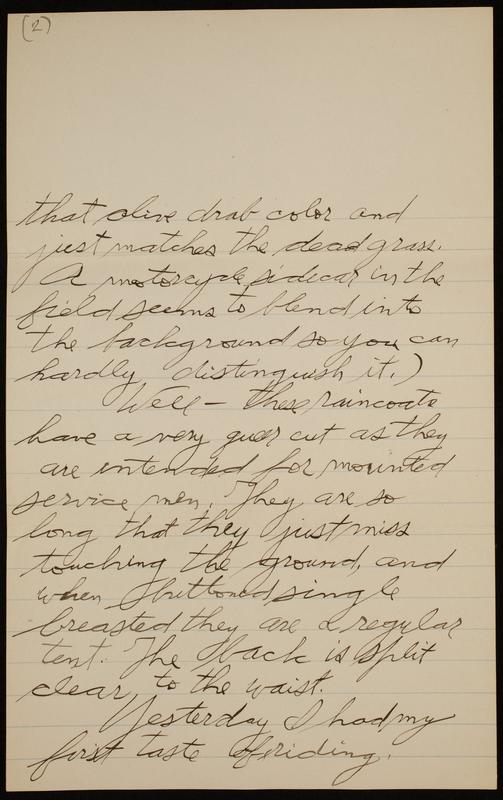 (2)
that olive drab color and
just matches the dead grass.
A motorcycle sidecar in the
field seems to blend into
the background so you can
hardly distinguish it.)
Well – these raincoats
have a very queer cut as they
are intended for mounted
service men. They are so
long that they just miss
touching the ground, and
when buttoned single
breasted they are a regular
tent. The back is split
clear, to the waist.
Yesterday I had my
first taste of riding.